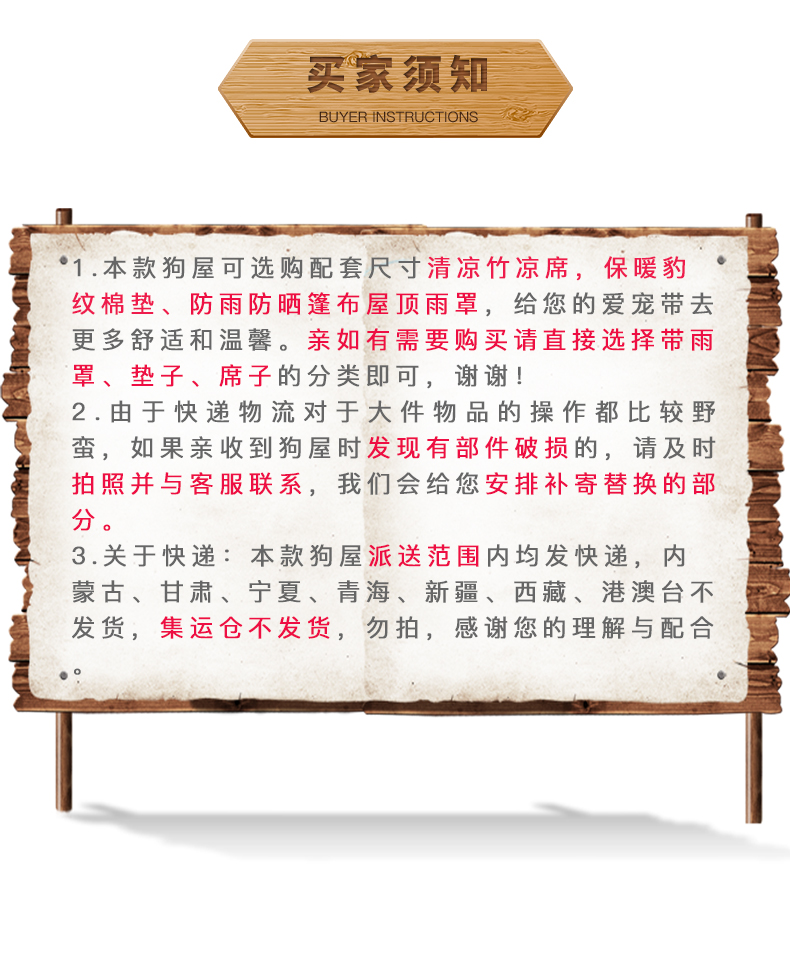 买家须知
BUYER INSTRUCTIONS
1.本款狗屋可选购配套尺寸清凉竹凉席，保暖豹
纹棉垫、防雨防晒篷布屋顶雨罩，给您的爱宠带去
更多舒适和温馨。亲如有需要购买请直接选择带雨
罩、垫子、席子的分类即可，谢谢！
2.由于快递物流对于大件物品的操作都比较野
蛮，如果亲收到狗屋时发现有部件破损的，请及时
拍照并与客服联系，我们会给您安排补寄替换的部
分。
3.关于快递：本款狗屋派送范围内均发快递，内
蒙古、甘肃、宁夏、青海、新疆、西藏、港澳台不
发货，集运仓不发货，勿拍，感谢您的理解与配合
。